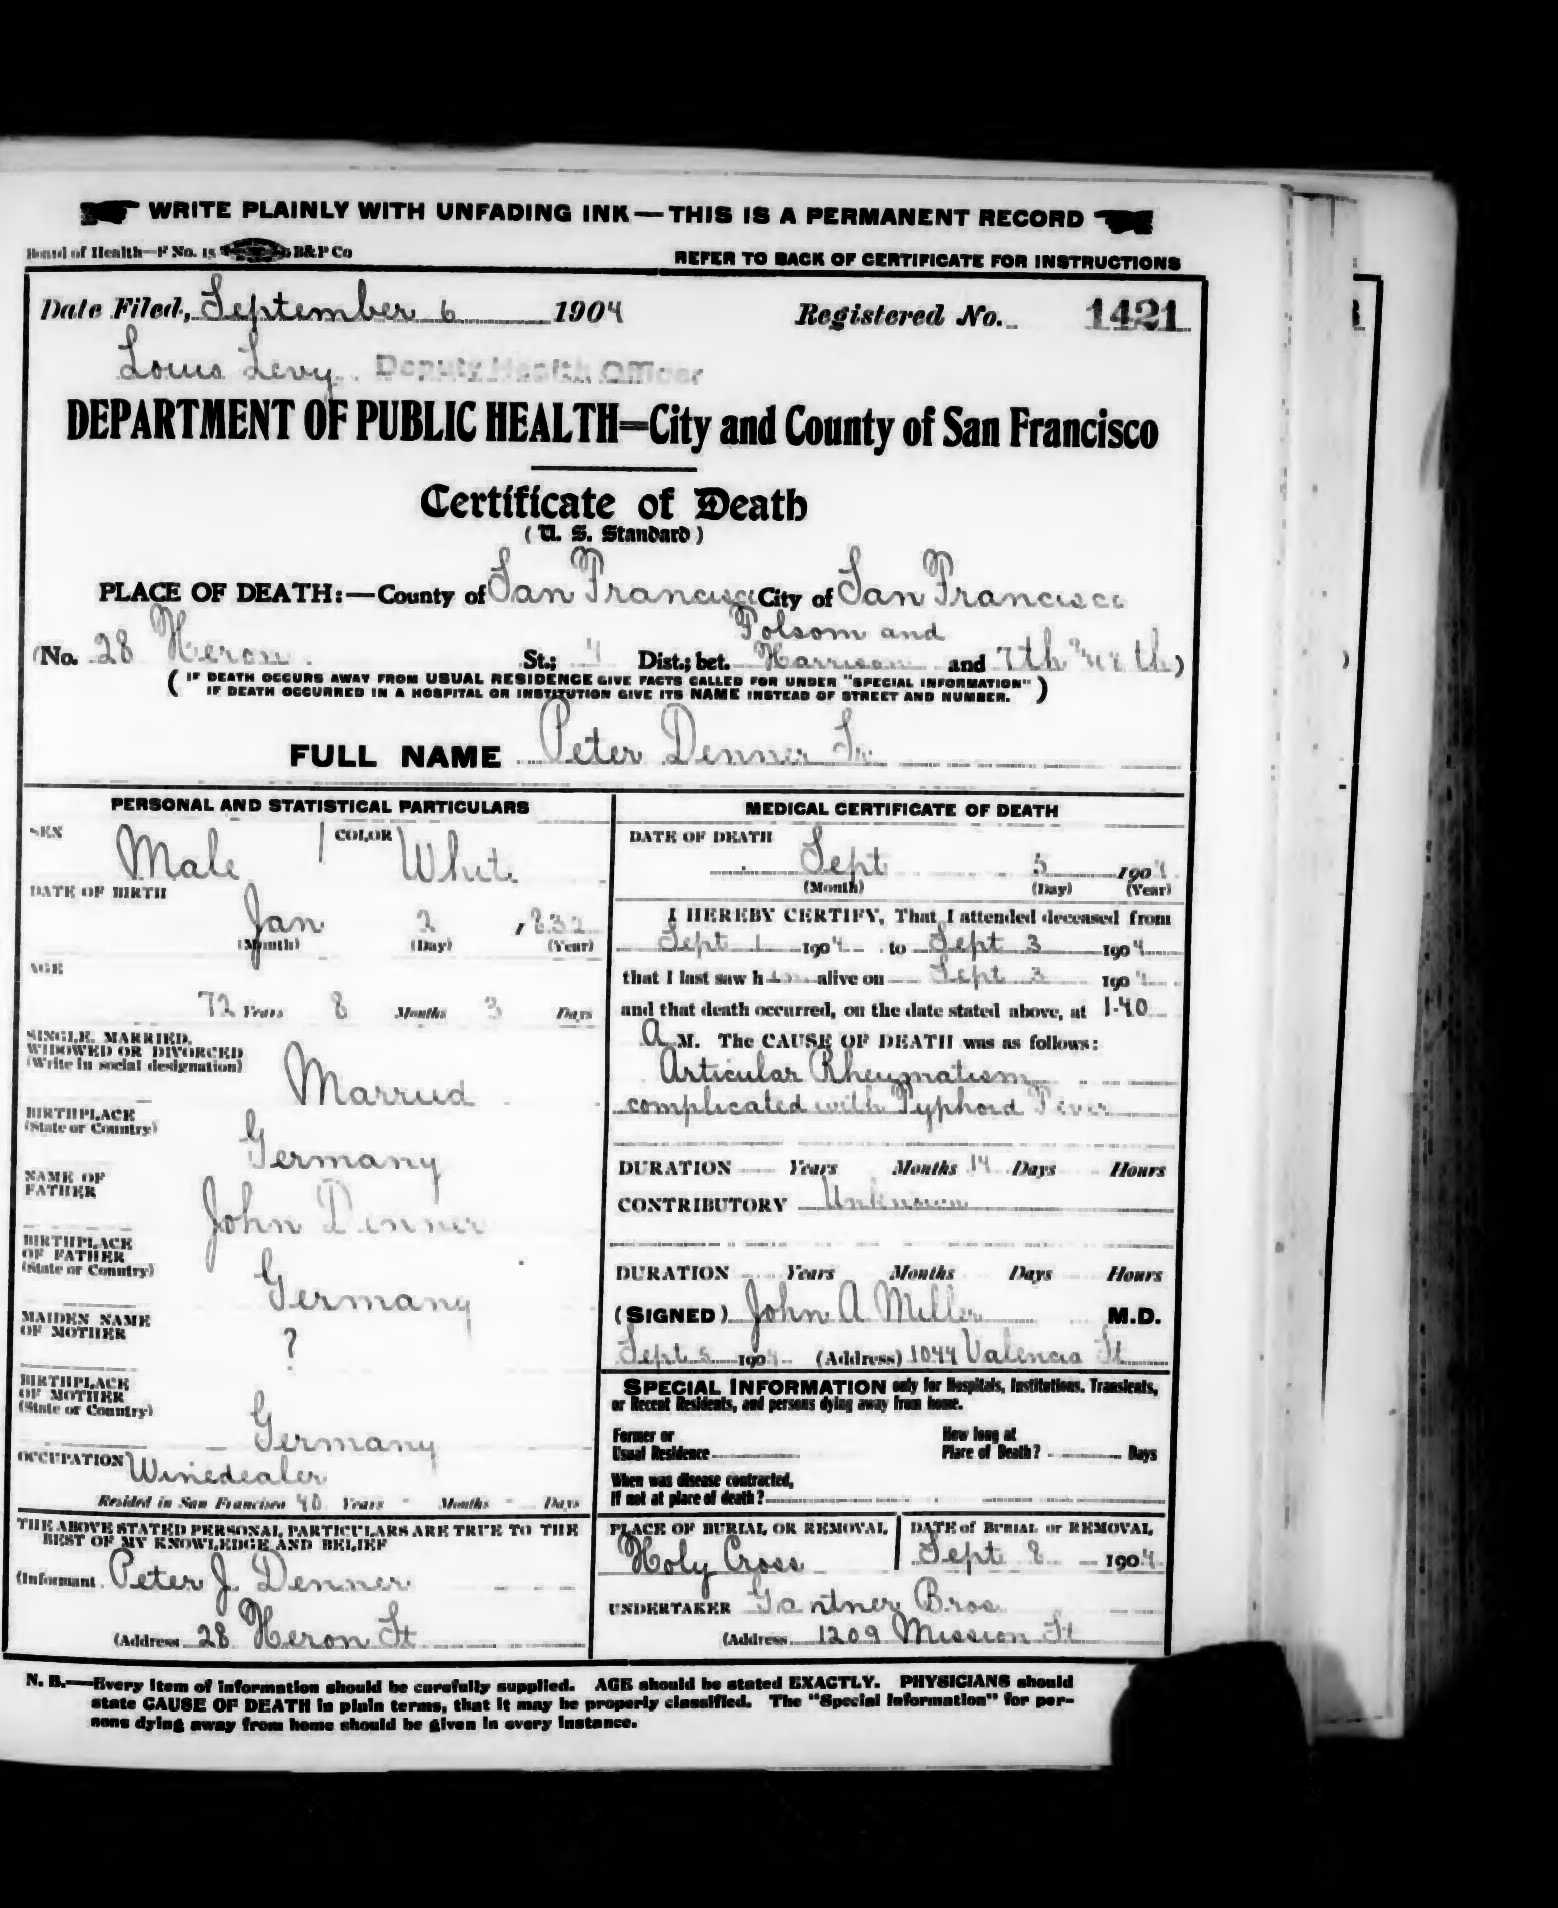 WRITE PLAINLY WITH UNFADING INK—THIS IS A PERMANENT RECORD
Board of Health—F No. 15 B&P Co
REFER TO BACK OF CERTIFICATE FOR INSTRUCTIONS
Date Filed, September 6 1904 Registered No. 1421
Louis Levy. Deputy Health Officer
DEPARTMENT OF PUBLIC HEALTH=City and County of San Francisco
Certificate of Death
( U. S. Standard )
PLACE OF DEATH:—County of San Francisco City of San Francisco
Folsom and
(No. 28 Heron St.; 4 Dist.; bet. Harrison and 7th and 8th)
( IF DEATH OCCURS AWAY FROM USUAL RESIDENCE GIVE FACTS CALLED FOR UNDER "SPECIAL INFORMATION"
IF DEATH OCCURRED IN A HOSPITAL OR INSTITUTION GIVE ITS NAME INSTEAD OF STREET AND NUMBER. )
FULL NAME Peter Denner Sr
PERSONAL AND STATISTICAL PARTICULARS
SEX Male COLOR White
DATE OF BIRTH
Jan 2 , 832
(Month) (Day) (Year)
AGE
72 Years 8 Months 3 Days
SINGLE, MARRIED,
WIDOWED OR DIVORCED
(Write in social designation)
Married
BIRTHPLACE
(State or Country)
Germany
NAME OF
FATHER
John Denner
BIRTHPLACE
OF FATHER
(State or Country)
Germany
MAIDEN NAME
OF MOTHER
?
BIRTHPLACE
OF MOTHER
(State or Country)
Germany
OCCUPATION Winedealer
Resided in San Francisco 40 Years - Months - Days
THE ABOVE STATED PERSONAL PARTICULARS ARE TRUE TO THE
BEST OF MY KNOWLEDGE AND BELIEF
(Informant Peter J. Denner
(Address 28 Heron St
MEDICAL CERTIFICATE OF DEATH
DATE OF DEATH
Sept 5 1904
(Month) (Day) (Year)
I HEREBY CERTIFY, That I attended deceased from
Sept 1 1904 to Sept 3 1904
that I last saw him alive on Sept 3 1904
and that death occurred, on the date stated above, at 1-40
A M. The CAUSE OF DEATH was as follows:
Articular Rheumatism
complicated with Typhoid Fever
DURATION Years Months 14 Days Hours
CONTRIBUTORY Unknown
DURATION Years Months Days Hours
(SIGNED) John A Miller M.D.
Sept 5 1904 (Address) 1044 Valencia St
SPECIAL INFORMATION only for Hospitals, Institutions, Transients,
or Recent Residents, and persons dying away from home.
Former or
Usual Residence
How long at
Place of Death? Days
When was disease contracted,
If not at place of death?
PLACE OF BURIAL OR REMOVAL
Holy Cross
DATE of BURIAL or REMOVAL
Sept 8 1904
UNDERTAKER Gantner Bros
(Address 1209 Mission St
N. B.—Every item of information should be carefully supplied. AGE should be stated EXACTLY. PHYSICIANS should
state CAUSE OF DEATH in plain terms, that it may be properly classified. The "Special Information" for per-
sons dying away from home should be given in every instance.